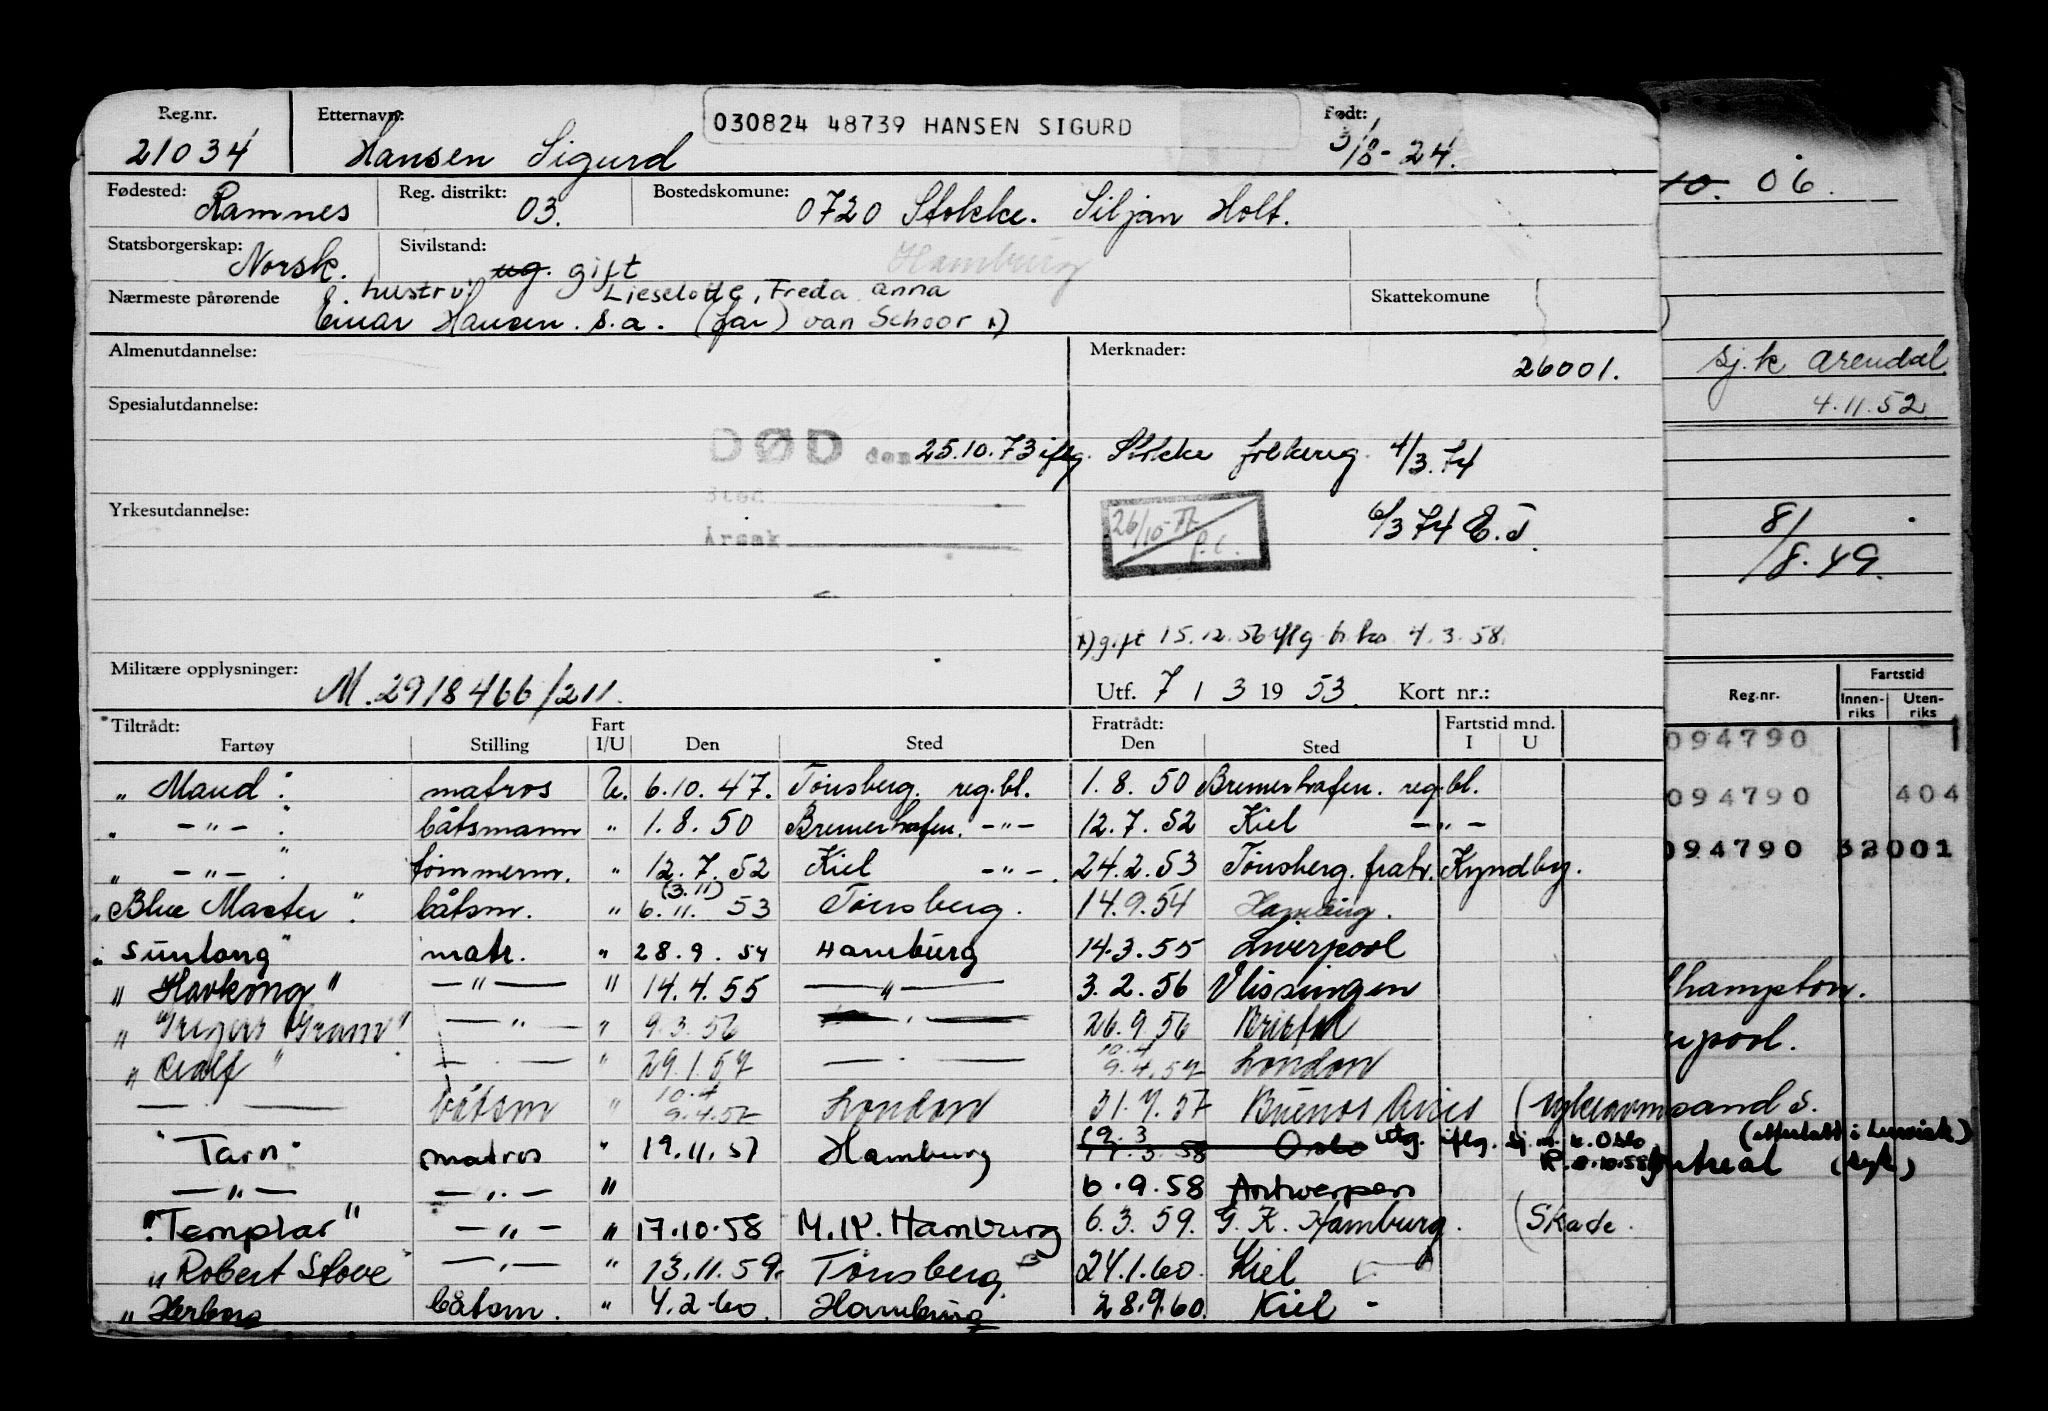 Reg.nr. Etternavn: 030824 48739 HANSEN SIGURD Født:
21034 Hansen Sigurd 3/8-24.
Fødested: Ramnes Reg. distrikt: 03. Bostedskomune: 0720 Stokke. Siljan Holt.
Statsborgerskap: Norsk. Sivilstand: ug. gift Hamburg
Nærmeste pårørende hustru: Lieselotte, Freda anna Skattekomune
Einar Hansen. s.a. (far) van Schoor x)
Almenutdannelse: Merknader: 26001.
Spesialutdannelse:
DØD den 25.10.73 iflg. Stokke folkereg. 4/3.74
Sted
Yrkesutdannelse: 26/10- p.c. 6/3 74 E.J.
Årsak
x) gift 15.12.56 iflg. 4.3.58.
Militære opplysninger: M. 2918466/211. Utf. 7 / 3 19 53. Kort nr.:
Tiltrådt: Fart Fratrådt: Fartstid mnd.
Fartøy Stilling I/U Den Sted Den Sted I U
" Maud". matros U. 6.10.47. Tønsberg. reg.bl. 1.8.50 Bremerhafen. reg.bl.
" -"- . båtsmann " 1.8.50 Bremerhafen. -"- 12.7.52 Kiel -"-
" -"- " tømmerm. " 12.7.52 Kiel -"-. 24.2.53 Tønsberg. fratr. Kyndby.
"Blue Master". båtsm. " (3.11) 6.11.53 Tønsberg. 14.9.54 Hamburg.
"Suntang" matr. " 28.9.54 Hamburg 14.3.55 Liverpool
" Havkong" -"- " 14.4.55 -"- 3.2.56 Vlissingen
" Gregers Gram" -"- " 9.3.56 -"- 26.9.56 Bristol
" Ralf " -"- " 29.1.57 -"- 10.4 9.4.57 London
-"- båtsm " 10.4 9.4.57 London 31.7.57 Buenos Aires
"Tarn" matros " 19.11.57 Hamburg 19.3 58 Oslo utg. iflg. Oslo
-"- -"- " 6.9.58 Antwerpen
"Templar" -"- " 17.10.58 M.K. Hamburg 6.3.59. G.K. Hamburg. (Skade.
" Robert Stove" -"- " 13.11.59. Tønsberg 24.1.60. Kiel
" Herborg båtsm. " 4.2.60. Hamburg 28.9.60. Kiel -
10. 06.
sj.k. Arendal
4.11.52.
8/8.49.
Reg.nr. Fartstid
Innen-riks Uten-riks
094790 1
094790 404
094790 32001